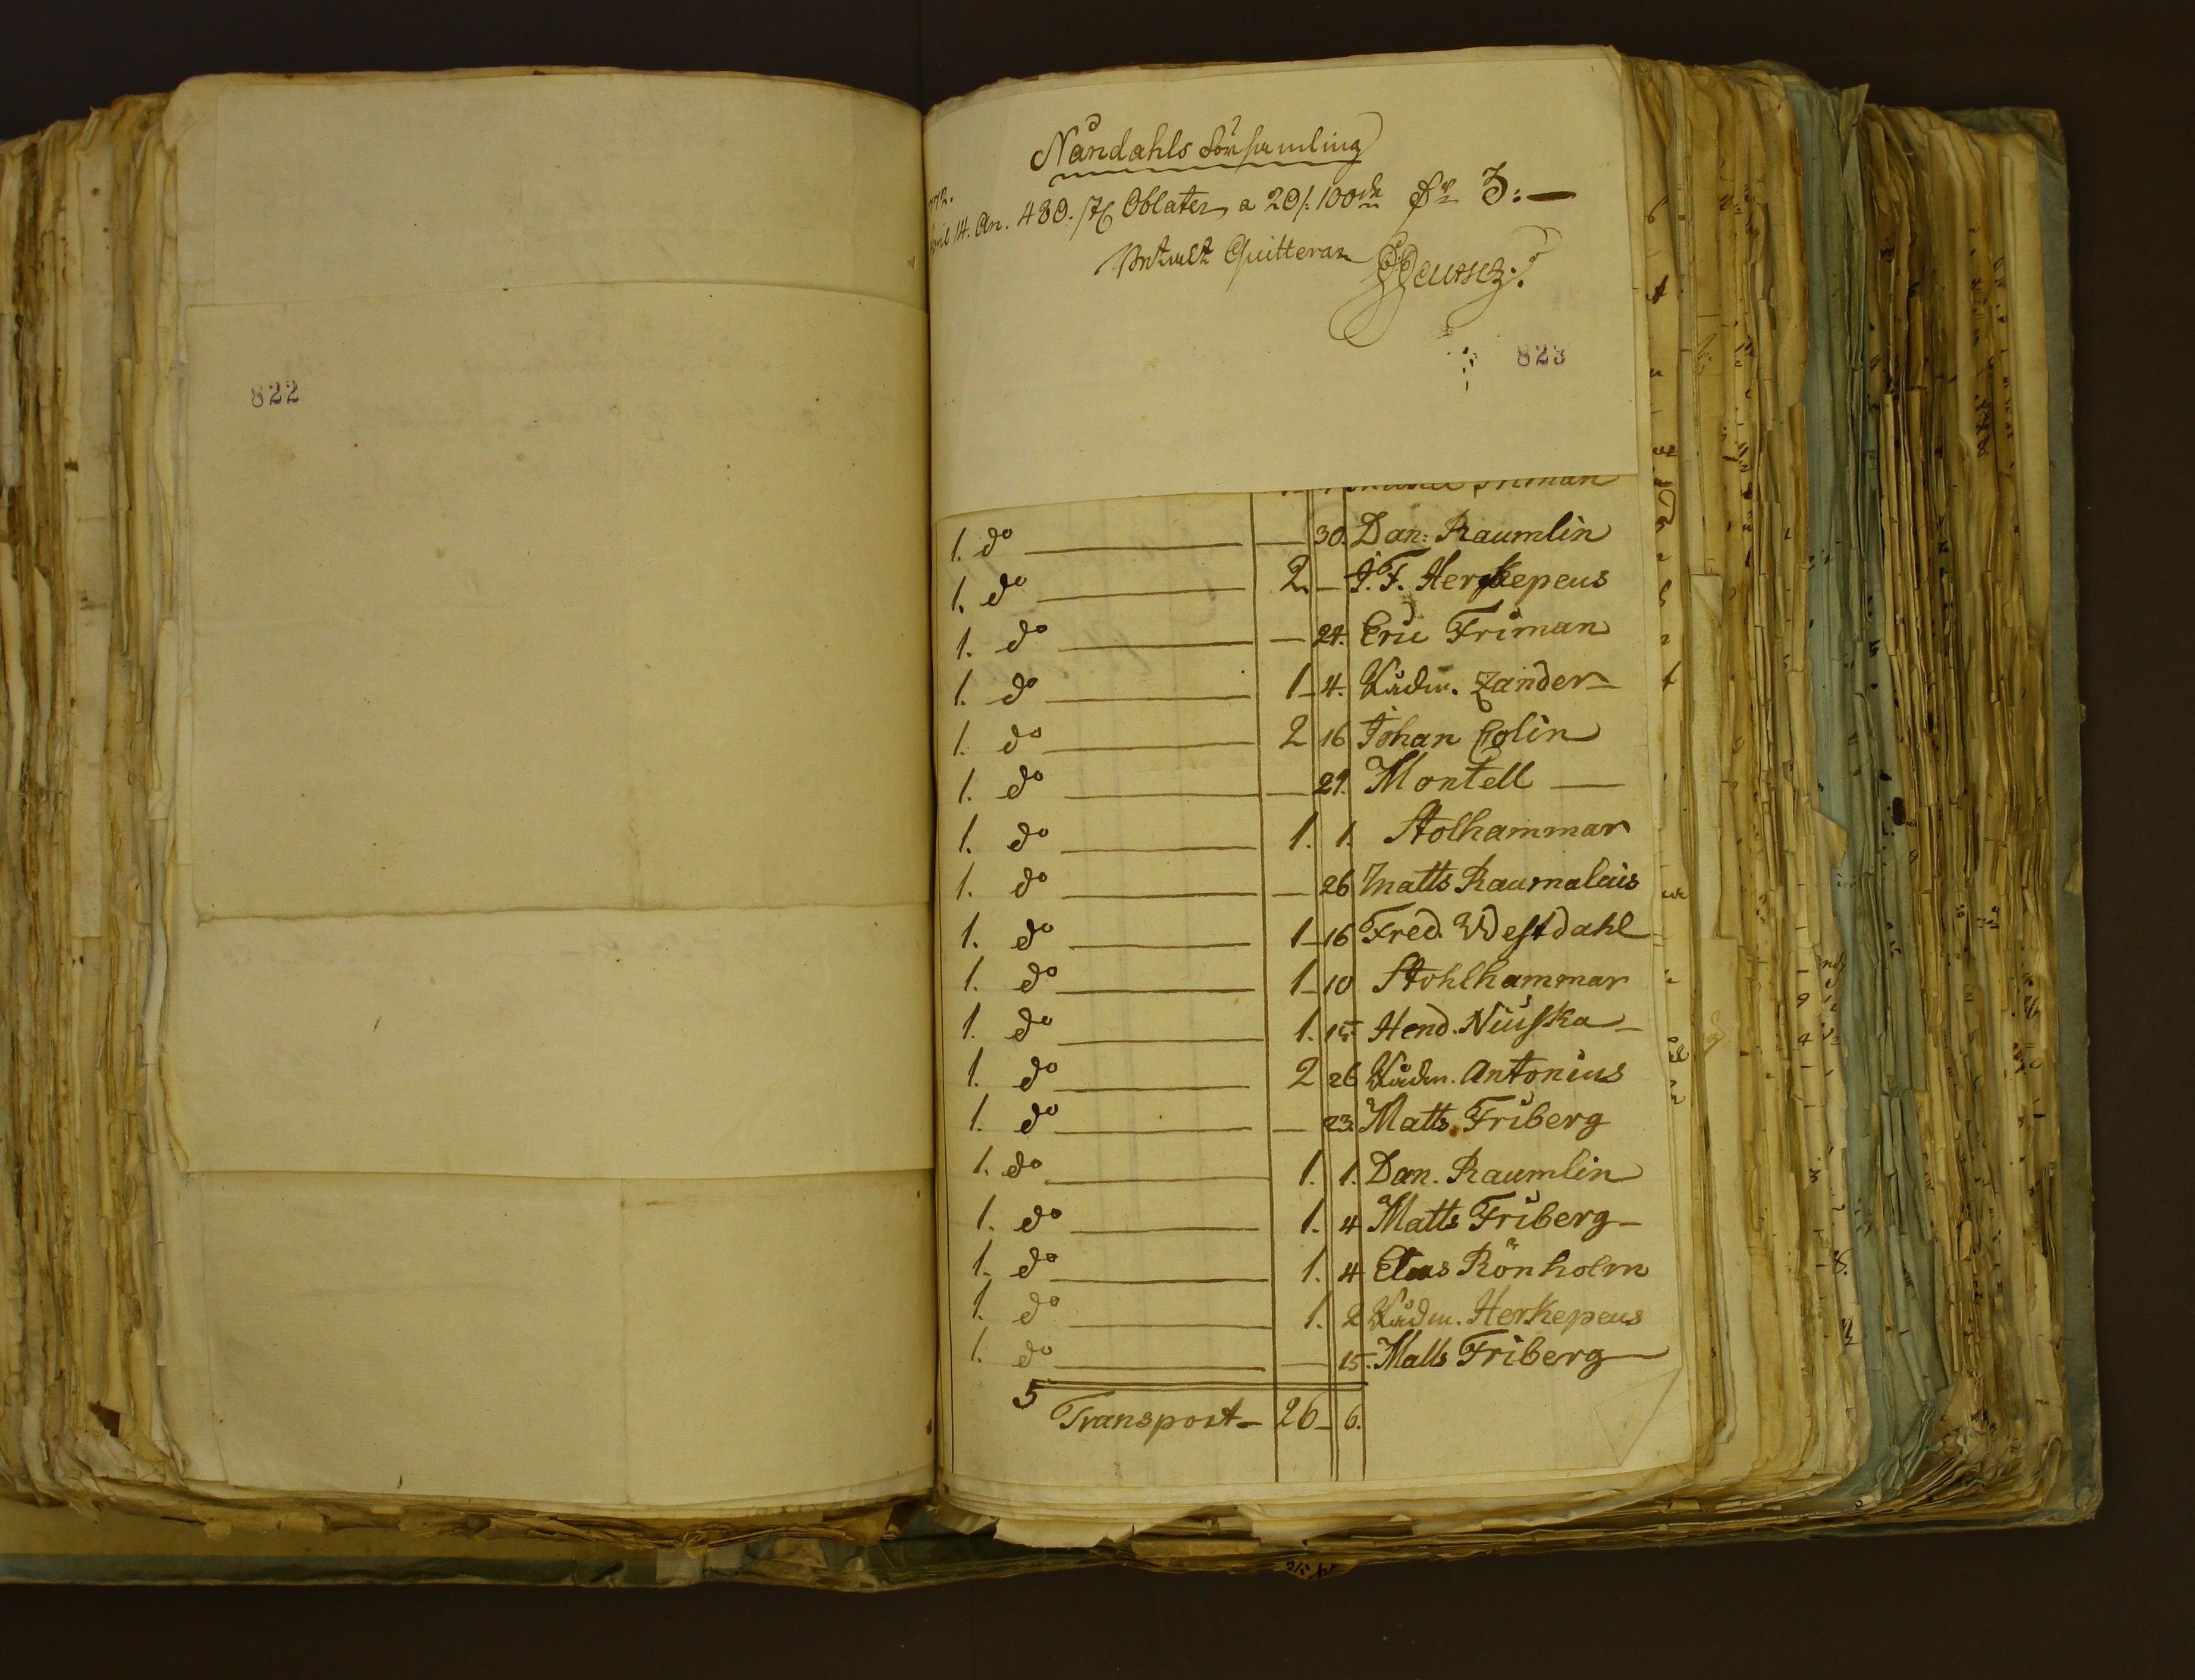 822
Nåndahls Församling
1772.
April 14. An. 480. st Oblater a 20/. 100de Sr 3:—
Betalt Quitteras
823
1. do — — 30. Dan: Raumlin
1. do — 2. — J. F. Herkepeus
1. do — — 24. Eric Friman
1. do — 1 — 4. Rådm. Zander
1. do — 2 16 Johan Colin
1. do — — 21. Montell —
1. do — 1. 1. Stolhammar
1. do — — 26 Matts Raumalais
1. do — 1 — 16 Fred. Westdahl
1. do — 1 — 10 Stohlhammar
1. do — 1. 15 Hend. Niuska
1. do — 2 26 Rådm. Antonius
1. do — — 23. Matts Friberg
1. do — 1. 1. Dan. Raumlin
1. do — 1. 4 Matts Friberg
1. do — 1. 4 Elias Rönholm
1. do — 1. 2 Rådm. Herkepeus
1. do — — 15. Matts Friberg
5 Transport — 26 — 6.